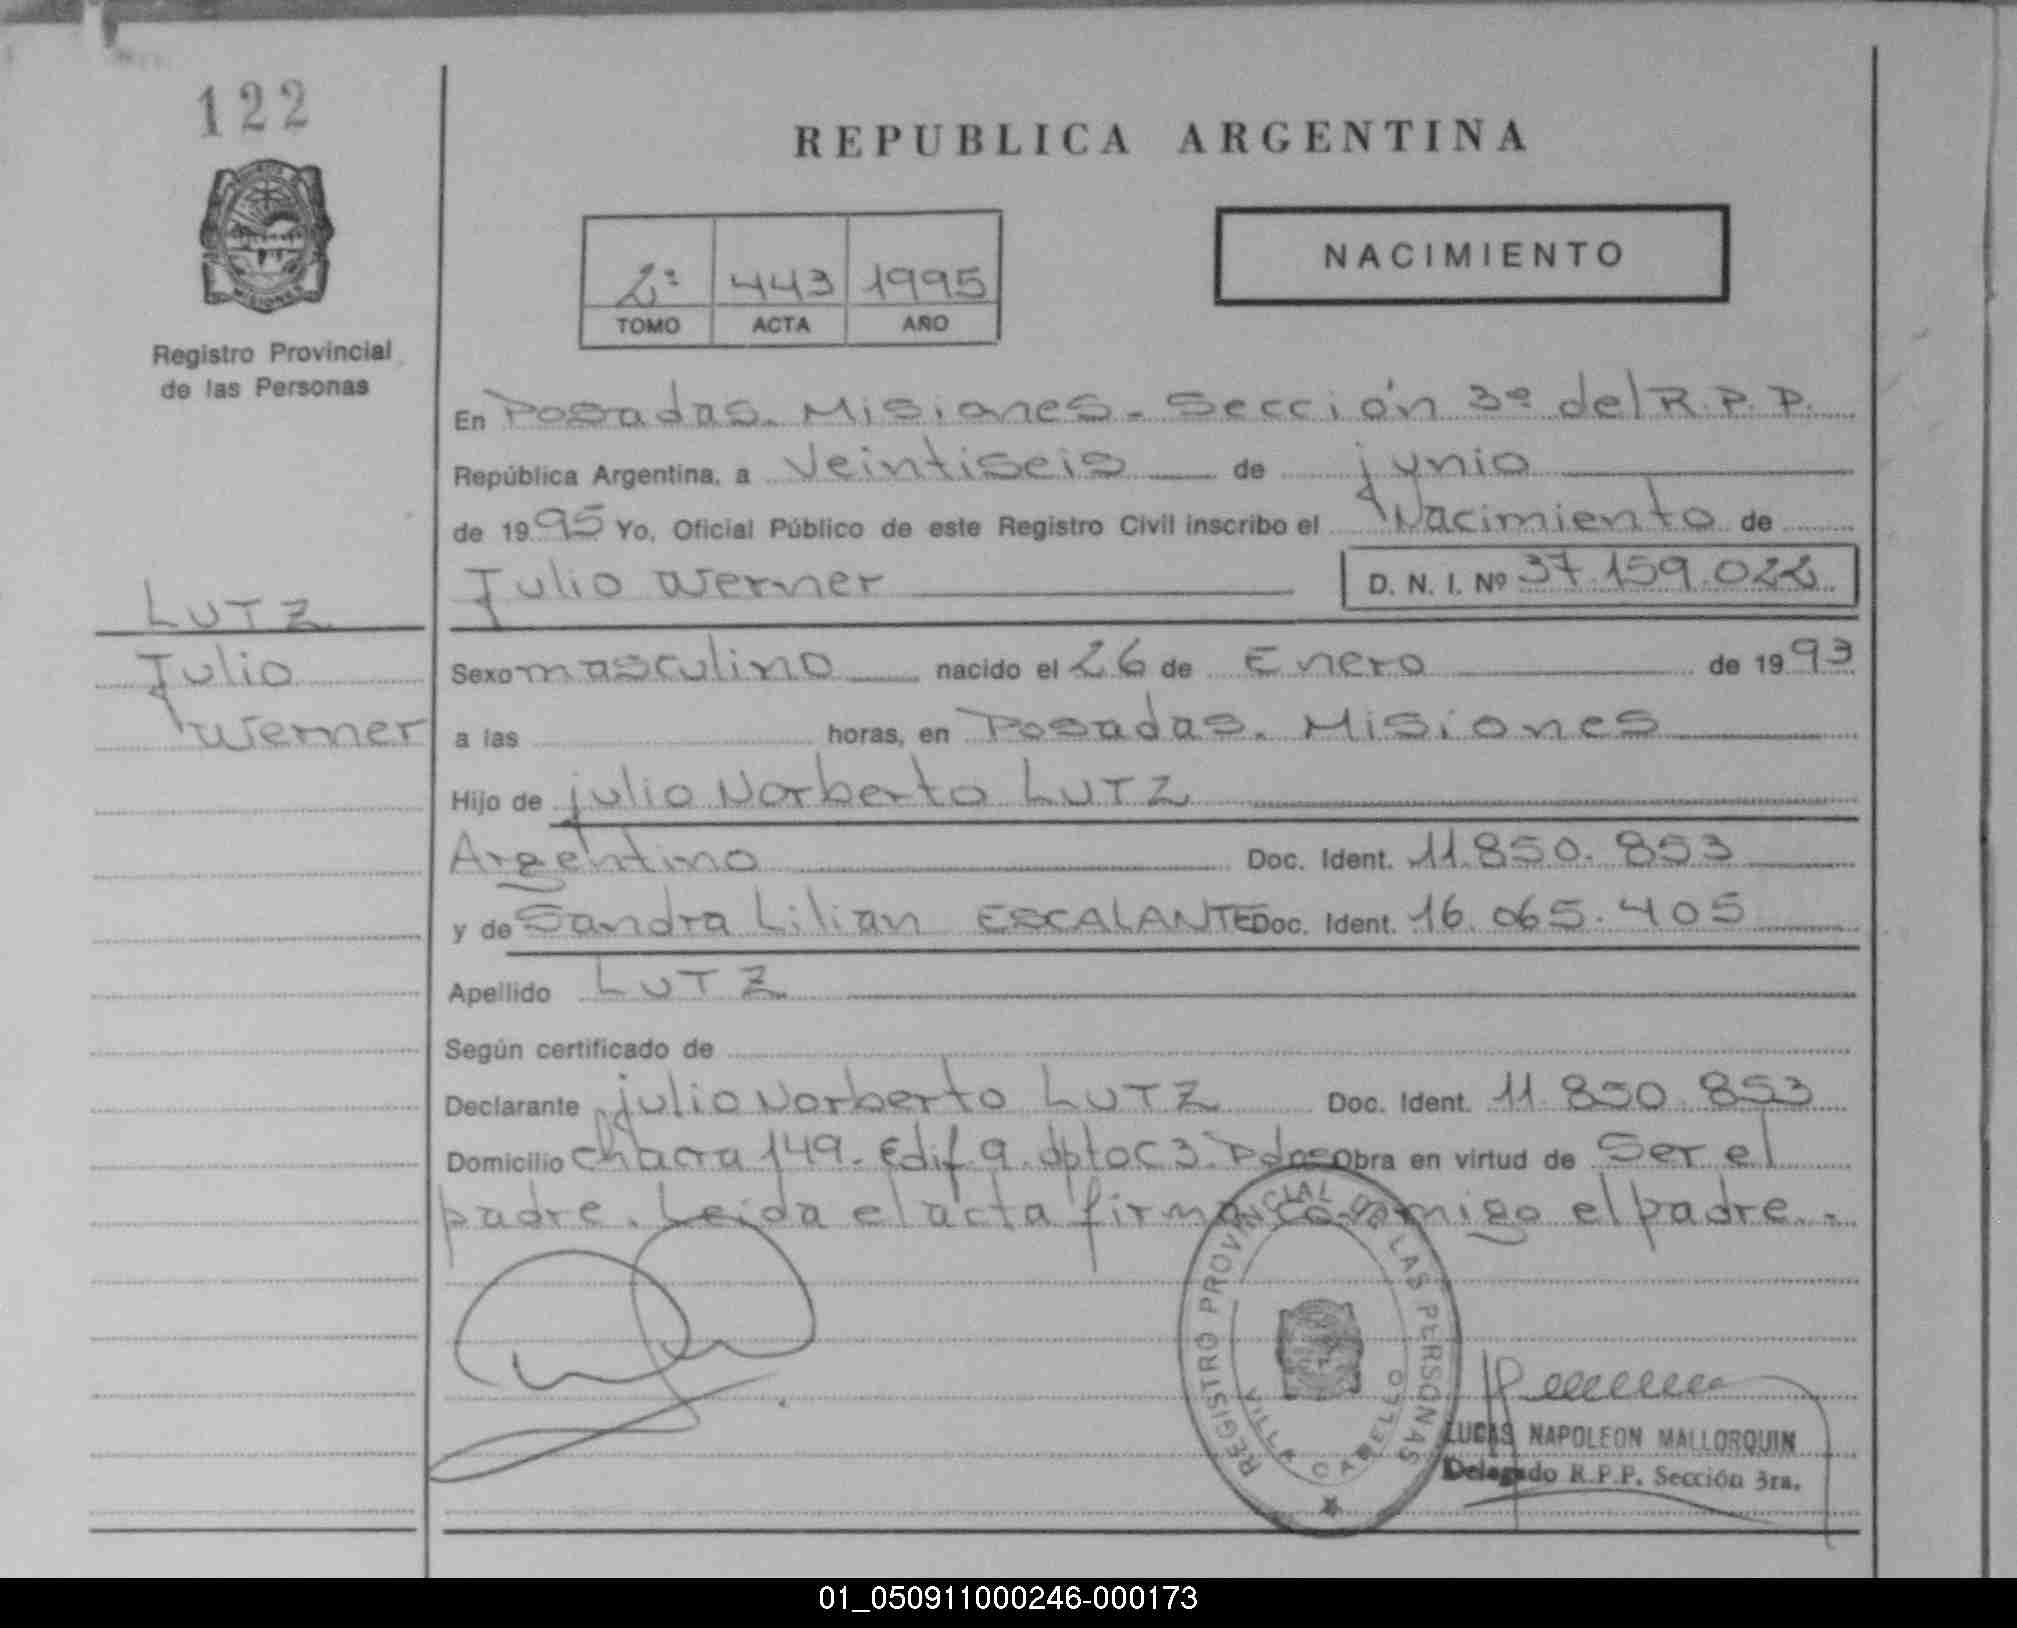 122
REPUBLICA ARGENTINA
NACIMIENTO
2º 443 1995
TOMO ACTA AÑO
Registro Provincial
de las Personas
En Posadas. Misiones. Sección 3º del R.P.P.
República Argentina, a Veintiseis de junio
de 1995 Yo, Oficial Público de este Registro Civil inscribo el Nacimiento de
Julio Werner D. N. I. Nº 37.159.022
LUTZ
Julio
Werner
Sexo masculino nacido el 26 de Enero de 1993
a las horas, en Posadas. Misiones
Hijo de julio Norberto LUTZ
Argentino Doc. Ident. 11.850.853
y de Sandra Lilian ESCALANTE Doc. Ident. 16.065.405
Apellido LUTZ
Según certificado de
Declarante julio Norberto LUTZ Doc. Ident. 11.850.853
Domicilio chacra 149. Edif 9. dpto C3. Pdas Obra en virtud de Ser el
padre. Leida el acta firma conmigo el padre.-
REGISTRO PROVINCIAL DE LAS PERSONAS
VILLA CABELLO
LUCAS NAPOLEON MALLORQUIN
Delegado R.P.P. Sección 3ra.
01_050911000246-000173